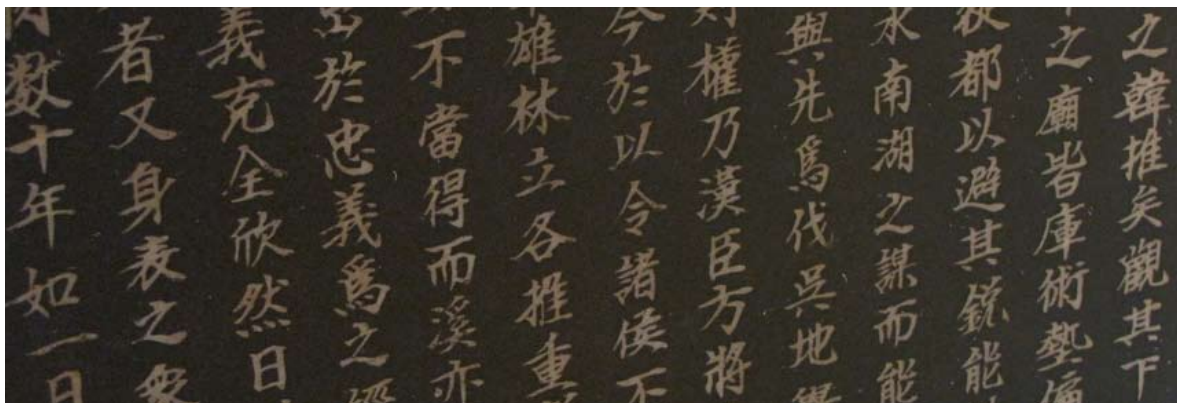 之韓推矣觀其下
之廟皆庫術墊偏
都以避其銳能
水南湖之謀而能
與先爲伐吳地
權乃漢臣方將
今於以令諸侯不
雄林立各推重
不當得而溪亦
於忠義爲之
義克全欣然日
者又身表之衆
数十年如一日